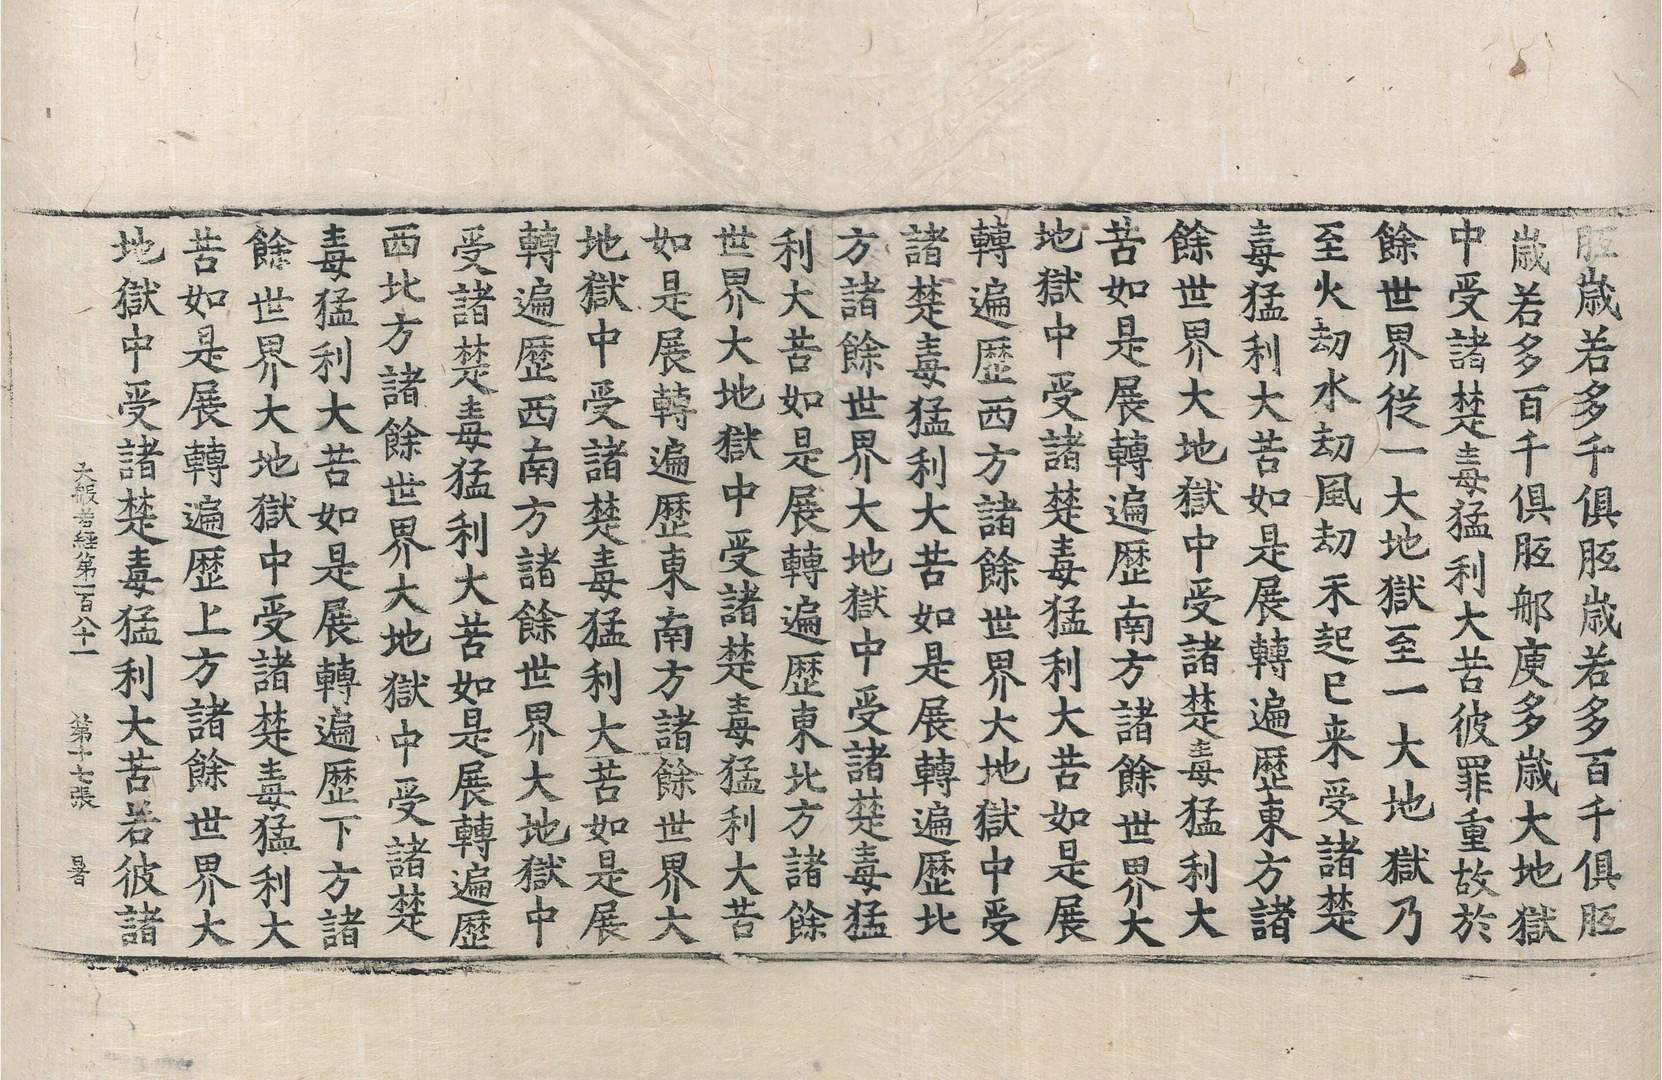 胝歲若多千俱胝歲若多百千俱胝
歲若多百千俱胝那庾多歲大地獄
中受諸楚毒猛利大苦彼罪重故於
餘世界從一大地獄至一大地獄乃
至火劫水劫風劫未起已来受諸楚
毒猛利大苦如是展轉遍歷東方諸
餘世界大地獄中受諸楚毒猛利大
苦如是展轉遍歷南方諸餘世界大
地獄中受諸楚毒猛利大苦如是展
轉遍歷西方諸餘世界大地獄中受
諸楚毒猛利大苦如是展轉遍歷北
方諸餘世界大地獄中受諸楚毒猛
利大苦如是展轉遍歷東北方諸餘
世界大地獄中受諸楚毒猛利大苦
如是展轉遍歷東南方諸餘世界大
地獄中受諸楚毒猛利大苦如是展
轉遍歷西南方諸餘世界大地獄中
受諸楚毒猛利大苦如是展轉遍歷
西北方諸餘世界大地獄中受諸楚
毒猛利大苦如是展轉遍歷下方諸
餘世界大地獄中受諸楚毒猛利大
苦如是展轉遍歷上方諸餘世界大
地獄中受諸楚毒猛利大苦若彼諸
大般若經第一百八十一 第十七張